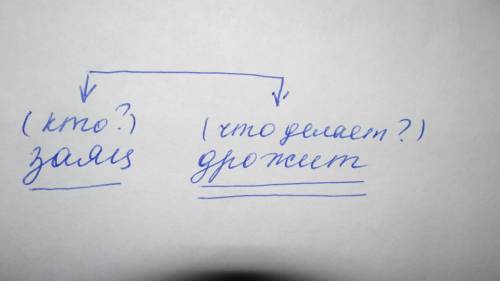 (кто?) (что делает?)
заяц дрожит